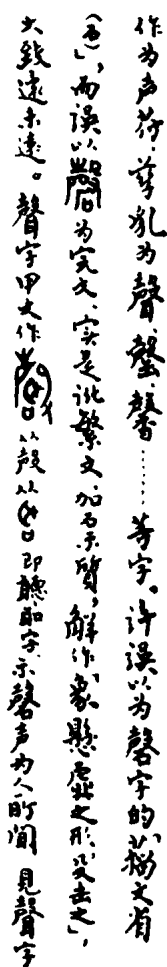 作为声符，孳乳为聲、罄、馨……等字。许误以为磬字的籀文省
（声），而误以㲈为完文，实是讹繁文，加石示質，解作“象悬虡之形，殳击之”，
大錢遠未達。聲字甲文作从殸从即聽聞字，示磬声为人所闻，見聲字